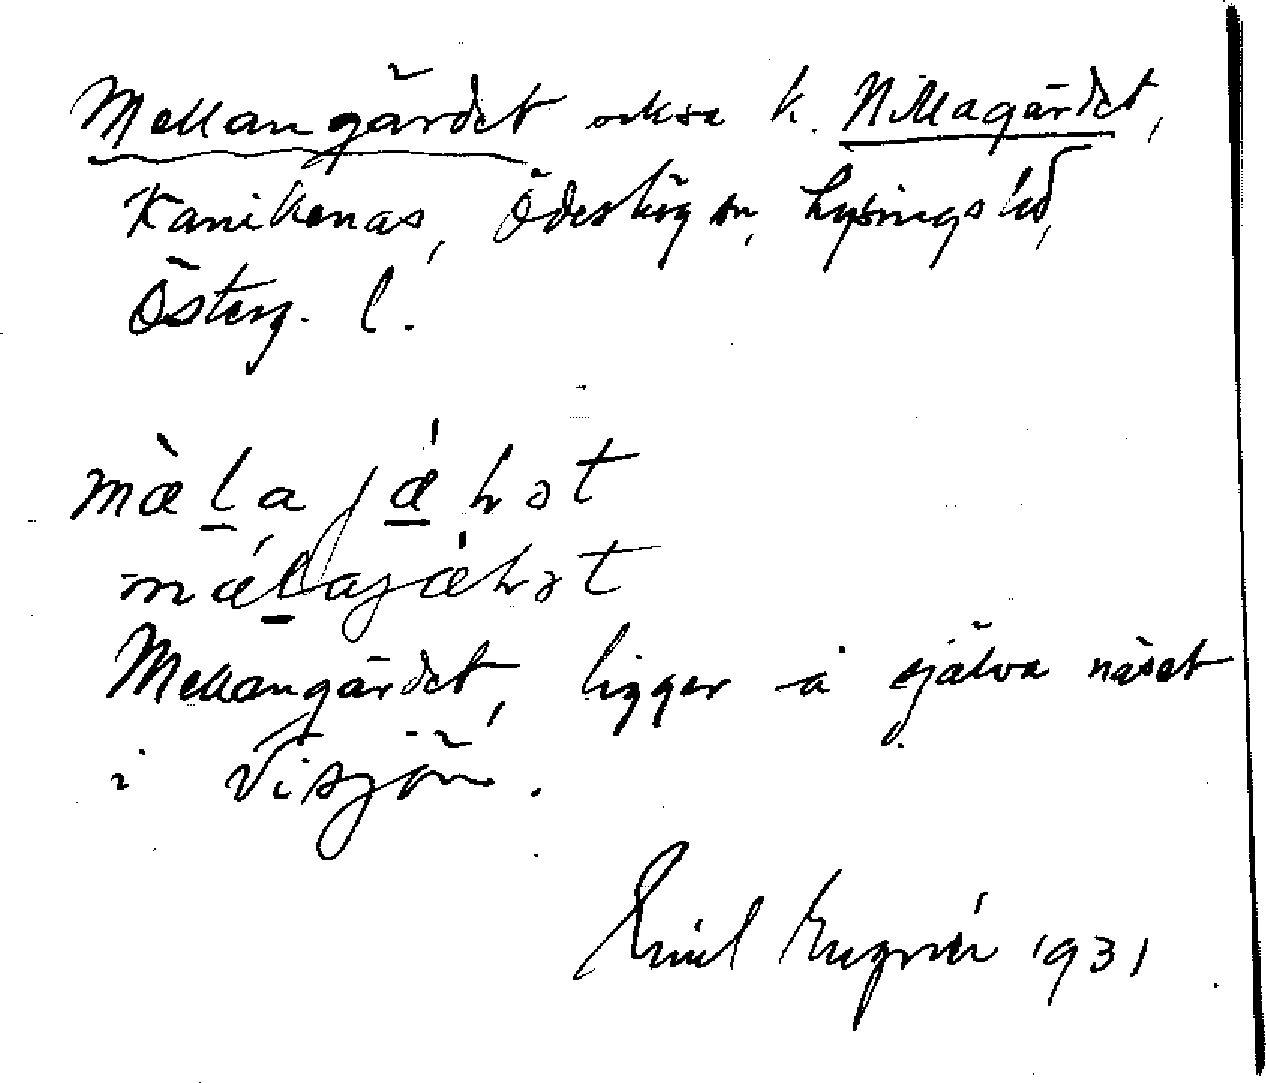 Mellangärdet också k. Nillagärdet,
Kanikenäs, Ödeshögs sn, Lysings hd,
Österg. l.
mæ̀lajǽṙət
mǽlajæṙət
Mellangärdet, ligger å själva näset
i Visjön.
Emil 1931